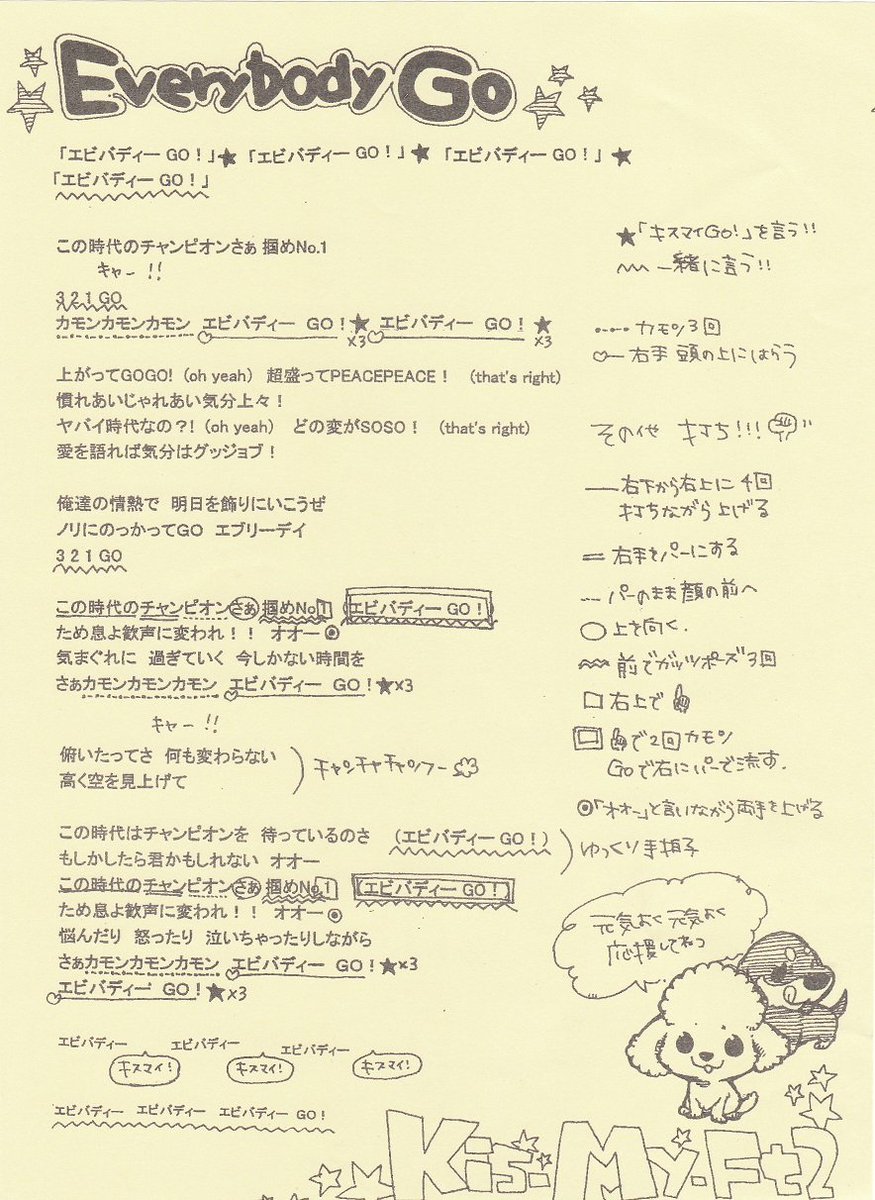 Everybody Go
「エビバディー GO！」★ 「エビバディー GO！」★ 「エビバディー GO！」★
「エビバディー GO！」
この時代のチャンピオンさぁ 掴めNo.1
キャー !!
3 2 1 GO
カモンカモンカモン エビバディー GO！★ エビバディー GO！★
×3 ×3
上がってGOGO!（oh yeah） 超盛ってPEACEPEACE！ （that's right)
慣れあいじゃれあい気分上々！
ヤバイ時代なの？!（oh yeah） どの変がSOSO！ （that's right)
愛を語れば気分はグッジョブ！
俺達の情熱で 明日を飾りにいこうぜ
ノリにのっかってGO エブリーデイ
3 2 1 GO
この時代のチャンピオンさぁ 掴めNo.1 （エビバディー GO！）
ため息よ歓声に変われ！！ オオー◉
気まぐれに 過ぎていく 今しかない時間を
さぁカモンカモンカモン エビバディー GO！★×3
キャー !!
俯いたってさ 何も変わらない
高く空を見上げて
チャンチャチャンフー
この時代はチャンピオンを 待っているのさ （エビバディー GO！）
もしかしたら君かもしれない オオー
ゆっくり手拍子
この時代のチャンピオンさぁ 掴めNo.1 （エビバディー GO！）
ため息よ歓声に変われ！！ オオー◉
悩んだり 怒ったり 泣いちゃったりしながら
さぁカモンカモンカモン エビバディー GO！★×3
エビバディー GO！★×3
エビバディー エビバディー エビバディー
キスマイ! キスマイ! キスマイ!
エビバディー エビバディー エビバディー GO！
★「キスマイGo!」を言う!!
一緒に言う!!
カモン3回
右手 頭の上にはらう
その他 打ち!!!
右下から右上に 4回
打ちながら上げる
右手をパーにする
パーのまま顔の前へ
上を向く.
前でガッツポーズ3回
右上で
で2回カモン
Goで右にパーで流す.
◉「オオー」と言いながら両手を上げる
元気よく 元気よく
応援してねっ
Kis-My-Ft2